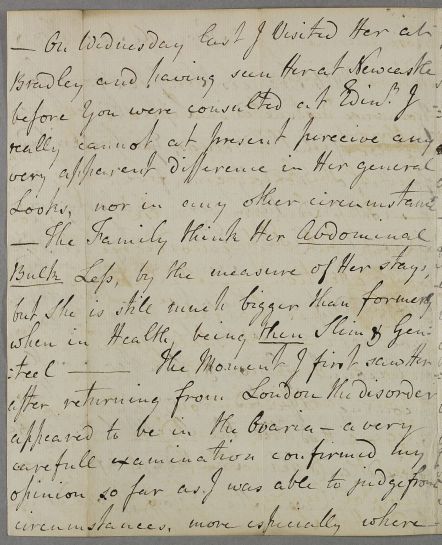 — On Wednesday last I Visited Her at
Bradley and having seen Her at Newcastle
before You were consulted at Edinr. I
really cannot at present perceive any
very apparent difference in Her general
Looks, nor in any other circumstance
— The Family think Her Abdominal
Bulk Less, by the measure of Her stays,
but she is still much bigger than formerly
when in Health, being then Slim & Gen-
:teel —— The Moment I first saw Her
after returning from London the disorder
appeared to be in the Ovaria — a very
carefull examination confirmed my
opinion so far as I was able to judge from
circumstances, more especially where